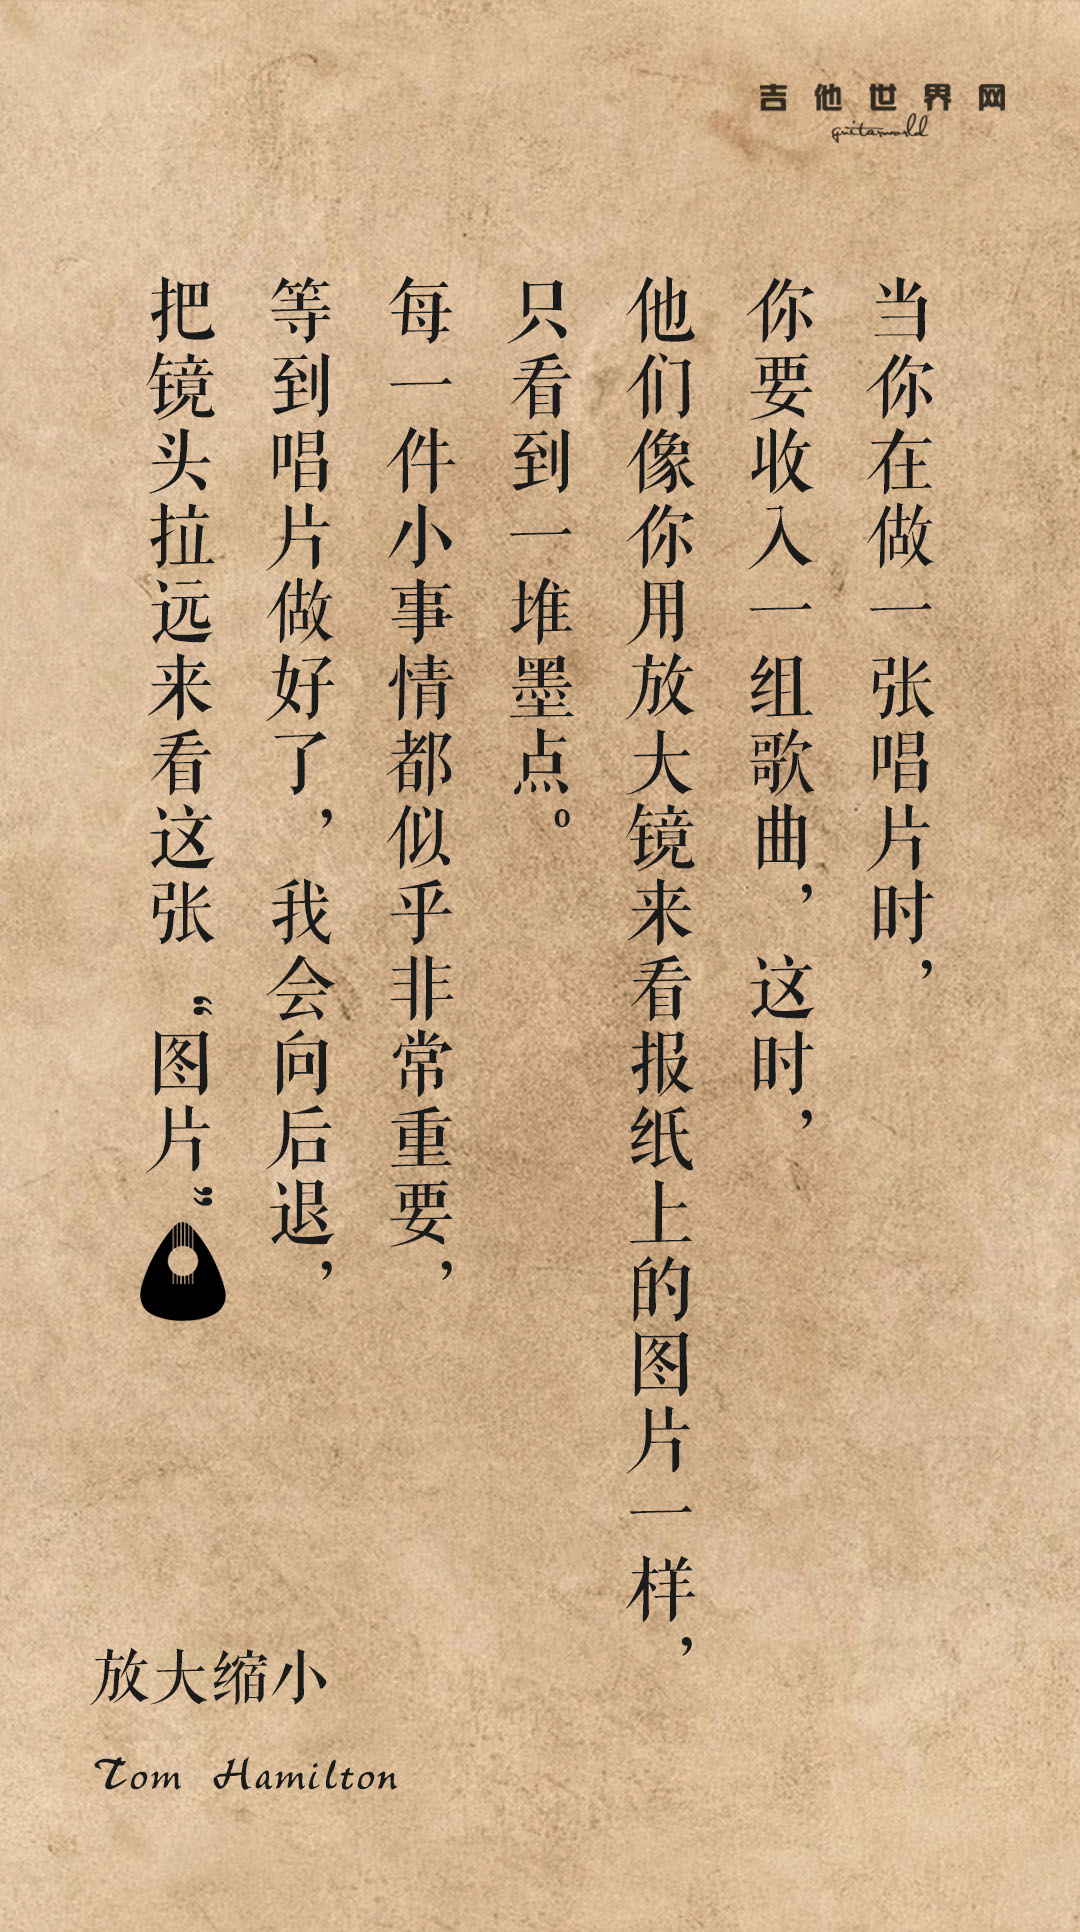 吉他世界网
guitarworld
当你在做一张唱片时，
你要收入一组歌曲，这时，
他们像你用放大镜来看报纸上的图片一样，
只看到一堆墨点。
每一件小事情都似乎非常重要，
等到唱片做好了，我会向后退，
把镜头拉远来看这张“图片”
放大缩小
Tom Hamilton